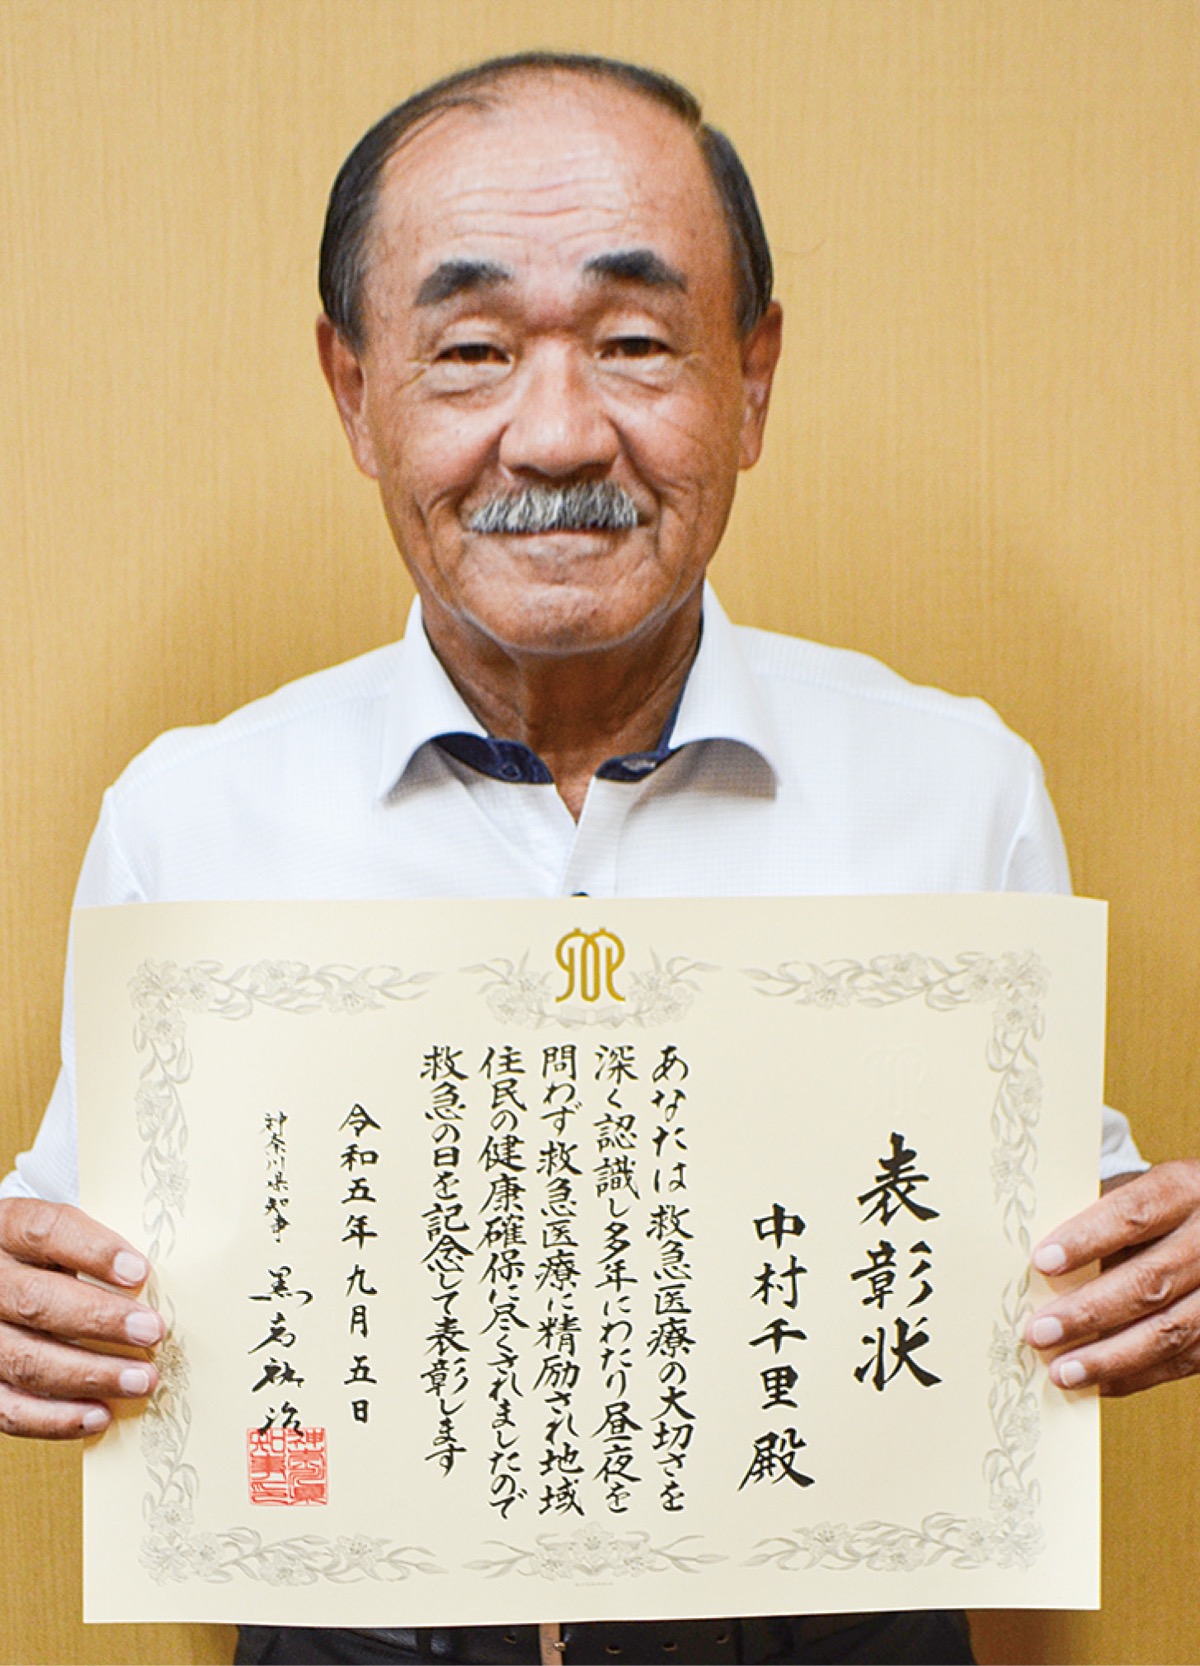 表彰状
中村千里殿
あなたは救急医療の大切さを
深く認識し多年にわたり昼夜を
問わず救急医療に精励され地域
住民の健康確保に尽くされましたので
救急の日を記念して表彰します
令和五年九月五日
神奈川県知事 黒岩祐治
神奈川県
知事之印